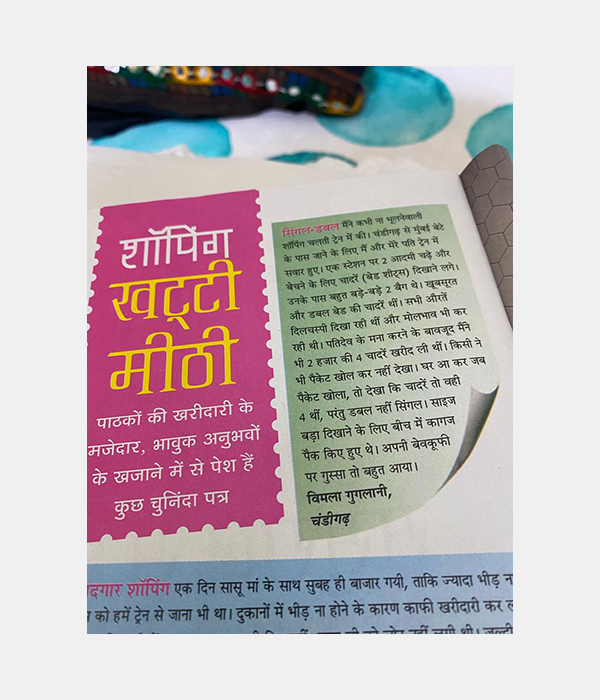 शॉपिंग
खट्टी
मीठी
पाठकों की खरीदारी के
मजेदार, भावुक अनुभवों
के खजाने में से पेश हैं
कुछ चुनिंदा पत्र
सिंगल-डबल मैंने कभी ना भूलनेवाली
शॉपिंग चलती ट्रेन में की। चंडीगढ़ से मुंबई बेटे
के पास जाने के लिए मैं और मेरे पति ट्रेन में
सवार हुए। एक स्टेशन पर 2 आदमी चढ़े और
बेचने के लिए चादरें (बेड शीट्स) दिखाने लगे।
उनके पास बहुत बड़े-बड़े 2 बैग थे। खूबसूरत
और डबल बेड की चादरें थीं। सभी औरतें
दिलचस्पी दिखा रही थीं और मोलभाव भी कर
रही थी। पतिदेव के मना करने के बावजूद मैंने
भी 2 हजार की 4 चादरें खरीद ली थीं। किसी ने
भी पैकेट खोल कर नहीं देखा। घर आ कर जब
पैकेट खोला, तो देखा कि चादरें तो वही
4 थीं, परंतु डबल नहीं सिंगल। साइज
बड़ा दिखाने के लिए बीच में कागज
पैक किए हुए थे। अपनी बेवकूफी
पर गुस्सा तो बहुत आया।
विमला गुगलानी,
चंडीगढ़
दगार शॉपिंग एक दिन सासू मां के साथ सुबह ही बाजार गयी, ताकि ज्यादा भीड़ न
को हमें ट्रेन से जाना भी था। दुकानों में भीड़ ना होने के कारण काफी खरीदारी कर